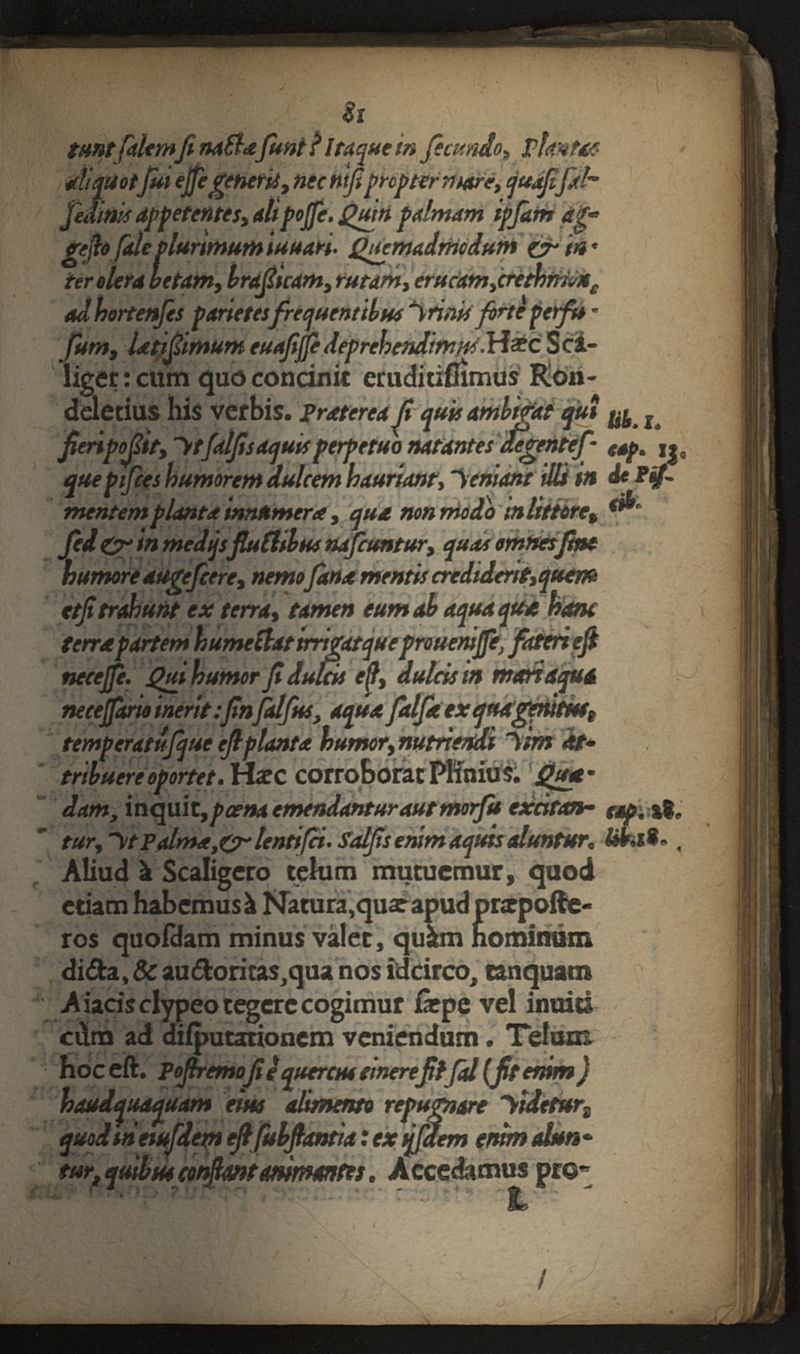 81
tunt ſalem ſi nactæ ſunt? Itaque in ſecundo, Plantas
aliquot ſui eſſe generis, nec niſi propter mare, quaſi ſal-
ſedinis appetentes, ali poſſe. Quin palmam ipſam ag-
geſto ſale plurimum iuuari. Quemadmodum & in-
ter olera betam, braſsicam, rutam, erucam, crethmon,
ad hortenſes parietes frequentibus vrinis fortè perfu-
ſum, latiſsimum euaſiſſe deprehendimus. Hæc Sca-
liger: cum quo concinit eruditiſſimus Ron-
deletius his verbis. Præterea ſi quis ambigat quî
lib. 1.
fieri poſsit, vt ſalſis aquis perpetuò natantes degenteſ-
cap. 13.
que piſces humorem dulcem hauriant, veniant illi in
de Piſ-
mentem plantæ innumeræ, quæ non modò in littore,
cib.
ſed & in medijs fluctibus naſcuntur, quas omnes ſine
humore augeſcere, nemo ſanæ mentis crediderit, quem
etſi trahunt ex terra, tamen eum ab aqua quæ hanc
terræ partem humectat irrigatque proueniſſe, fateri eſt
neceſſe. Qui humor ſi dulcis eſt, dulcis in maris aqua
neceſſario inerit: ſin ſalſus, aquæ ſalſæ ex qua genitus,
temperatúſque eſt plantæ humor, nutriendi vim at-
tribuere oportet. Hæc corroborat Plinius. Quæ-
dam, inquit, pœna emendantur aut morſu excitan-
cap. 28.
tur, vt Palmæ, & lentiſci. Salſis enim aquis aluntur.
lib. 18.
Aliud à Scaligero telum mutuemur, quod
etiam habemus à Natura, quæ apud præpoſte-
ros quoſdam minus valet, quàm hominum
dicta, & auctoritas, qua nos idcirco, tanquam
Aiacis clypeo tegere cogimur ſæpe vel inuiti
cùm ad diſputationem veniendum. Telum
hoc eſt. Poſtremo ſi è quercus cinere fit ſal (fit enim)
haudquaquam eius alimento repugnare videtur,
quod in eiuſdem eſt ſubſtantia: ex ijſdem enim alun-
tur, quibus conſtant animantes. Accedamus pro-
L